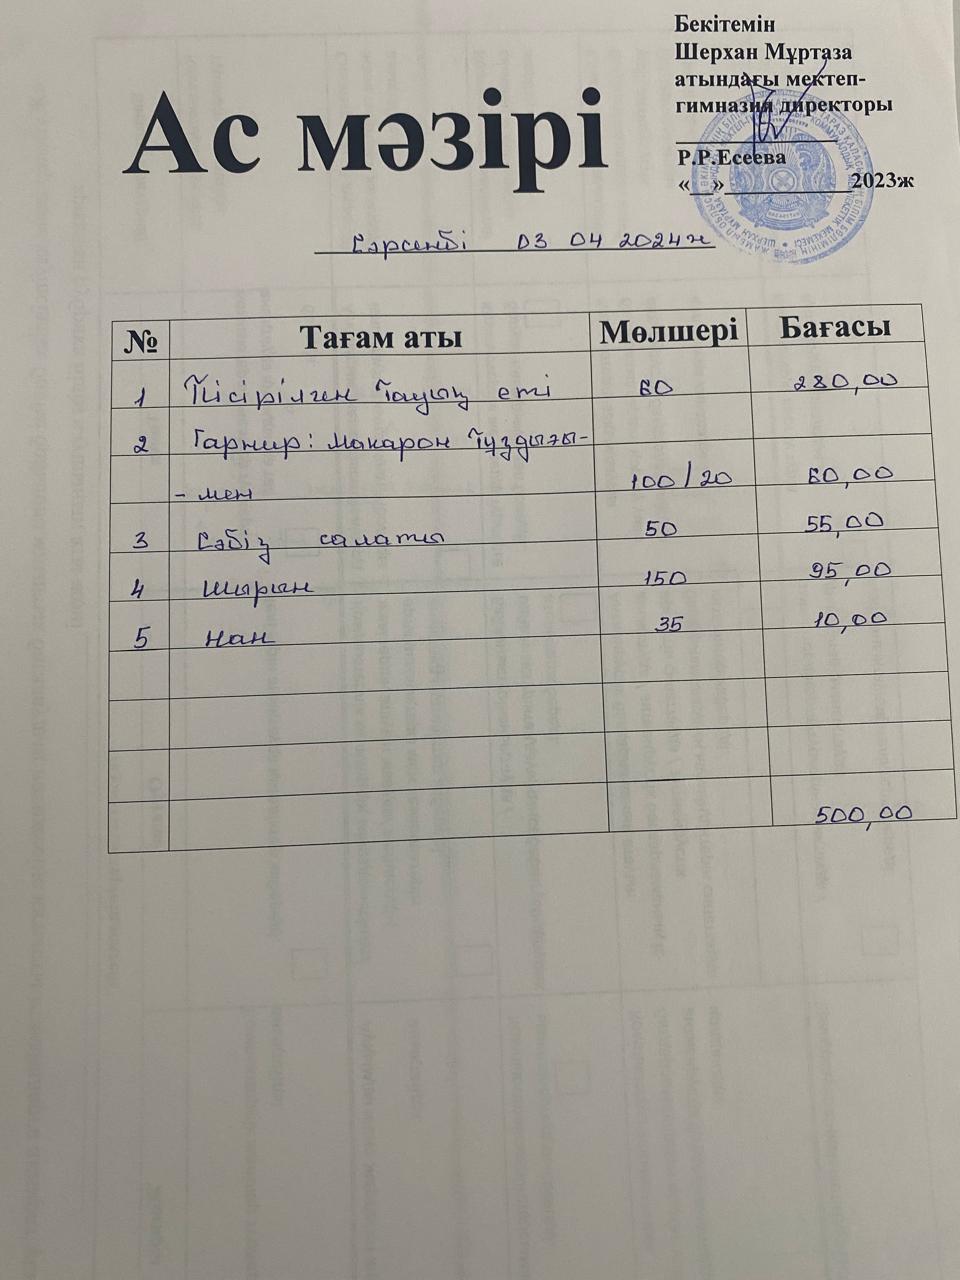 Бекітемін
Шерхан Мұртаза
атындағы мектеп-
гимназия директоры
Р.Р.Есеева
«__»____________2023ж
Ас мәзірі
Сәрсенбі 03 04 2024ж
№ Тағам аты Мөлшері Бағасы
1 Пісірілген тауық еті 60 280,00
2 Гарнир: макарон тұздығы-
- мен 100/20 60,00
3 Сәбіз салаты 50 55,00
4 Шырын 150 95,00
5 Нан 35 10,00
500,00